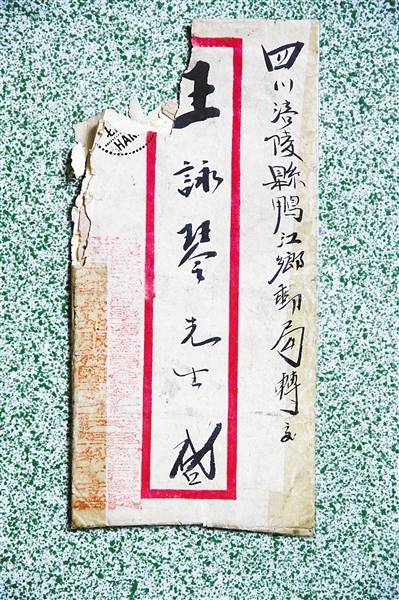 四川涪陵縣鴨江鄉郵局轉交
王詠琴先生啟
HAN